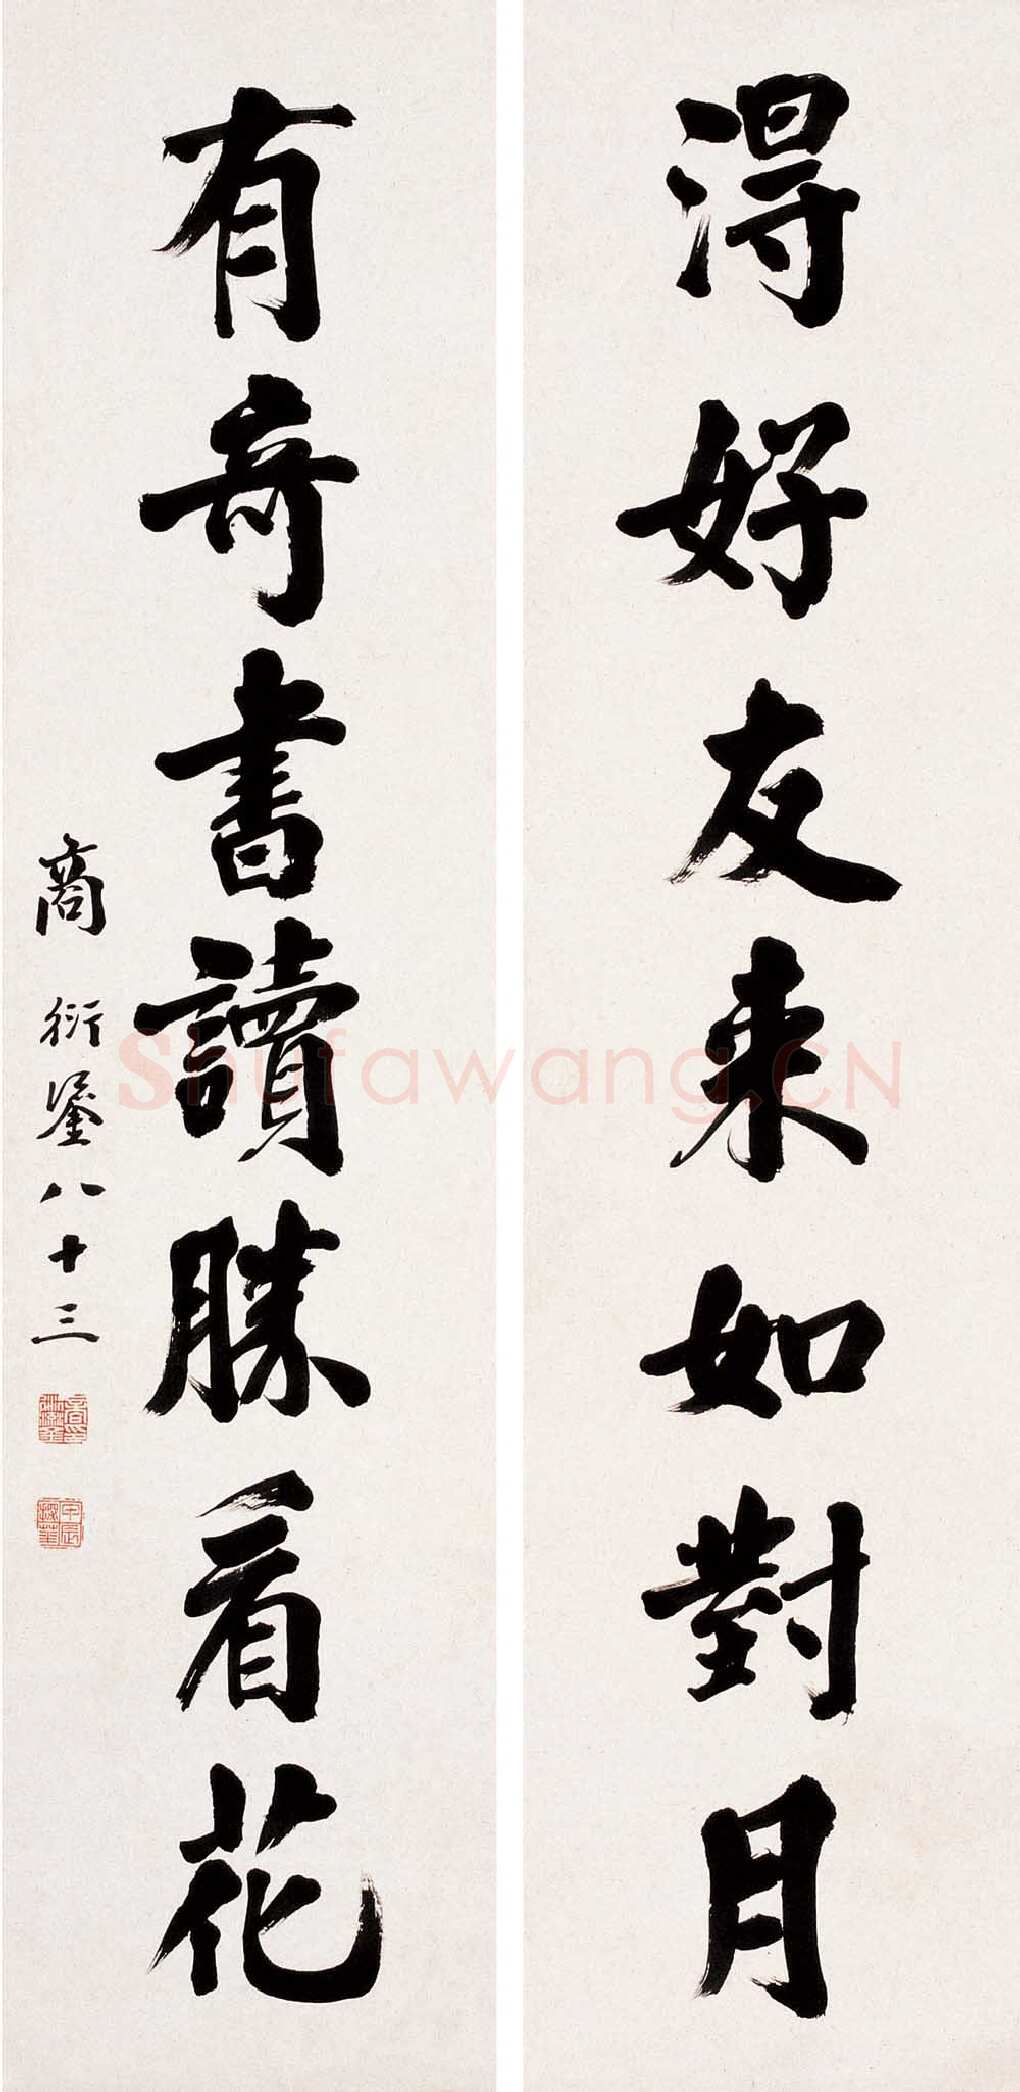 得好友来如對月
有奇書讀勝看花
商衍鎏八十三
Shufawang.CN